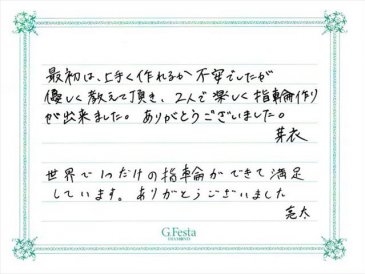 最初は、上手く作れるか不安でしたが
優しく教えて頂き、2人で楽しく指輪作り
が出来ました。ありがとうございました。
芽衣
世界で1つだけの指輪ができて満足
しています。ありがとうございました
亮太
G.Festa
DIAMOND